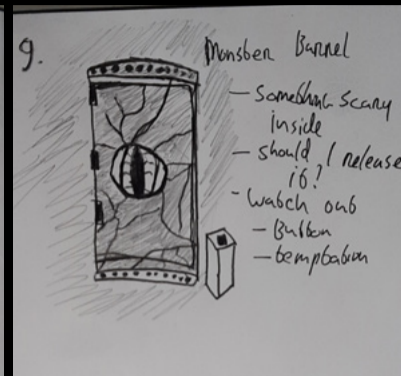 9.
Monster Barrel
- Something scary
inside
- should I release
it?
- watch out
- Button
- temptation